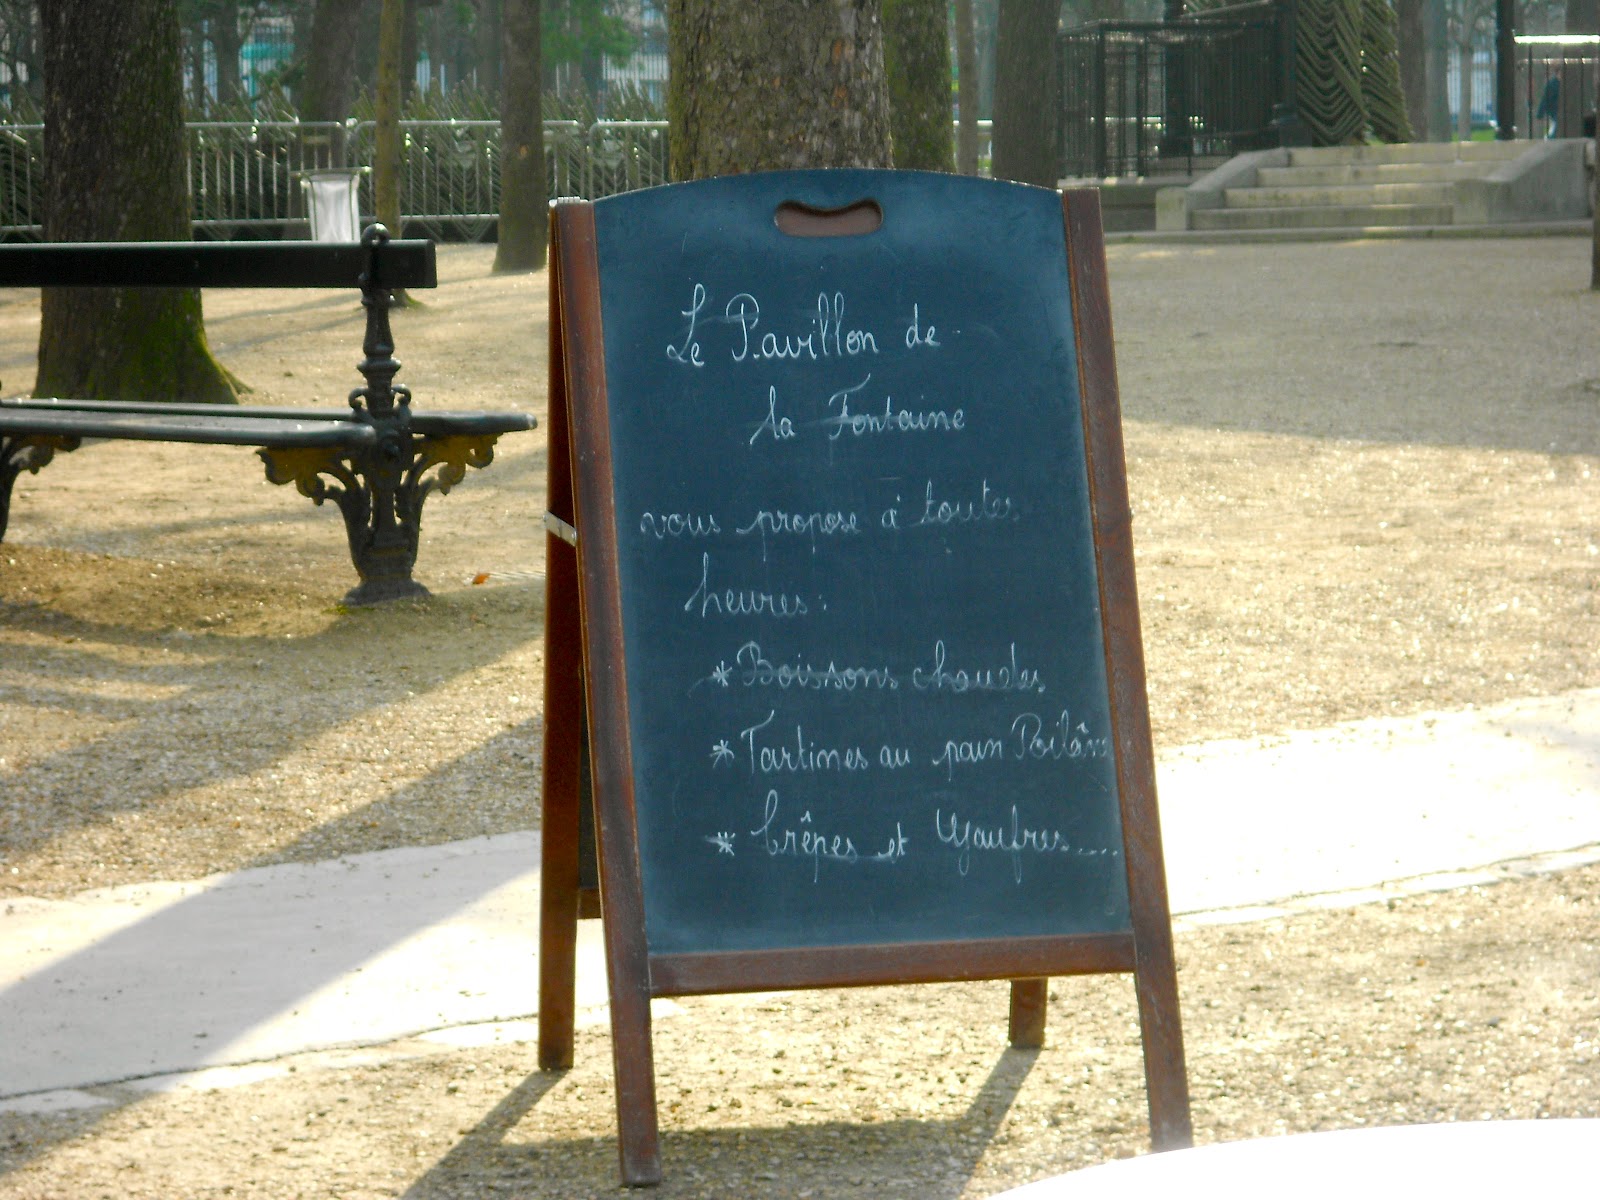 Le Pavillon de
la Fontaine
vous propose à toutes
heures:
* Boissons chaudes
* Tartines au pain Poilâne
* Crêpes et Gaufres.....